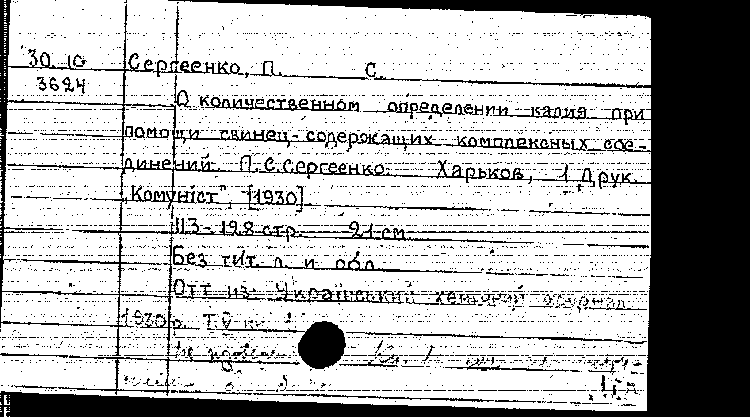 30-10 Сергеенко, П. С.
3624
О количественном определении калия при
помощи свинец-содержащих комплексных сое-
динений. П.С.Сергеенко. Харьков, 1 Друк.
"Комуніст", [1930]
113-128 стр. 21 см.
Без тит. л. и обл.
Отт. из: Український хемічний журнал
1930 р. T.V кн.